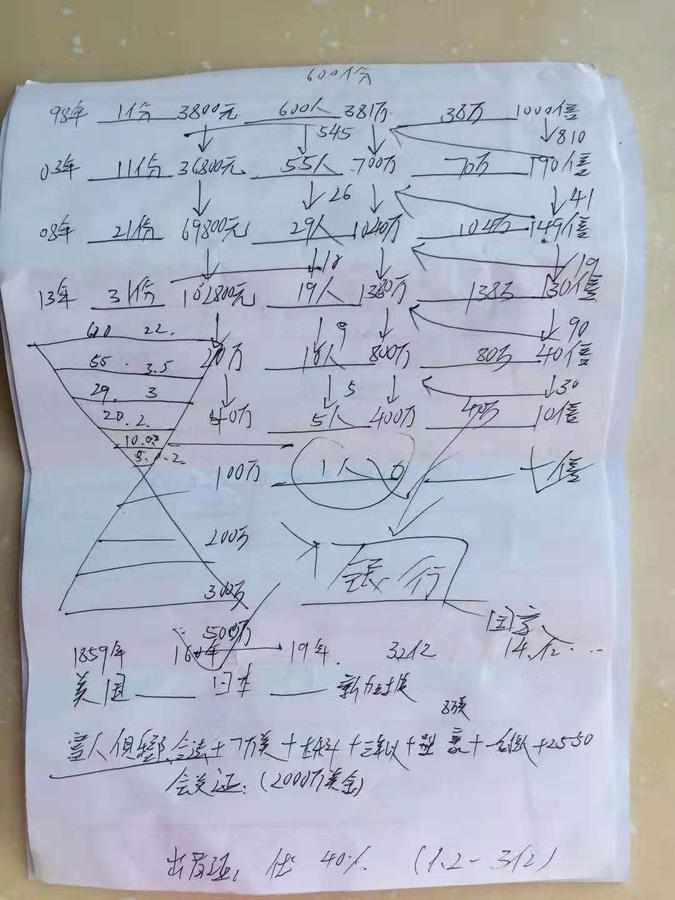 600份
98年 1份 3800元 600人 381万 38万 1000倍
545 810
03年 11份 36800元 55人 700万 70万 190倍
26 41
08年 21份 69800元 29人 1040万 104万 149倍
10 19
13年 31份 102800元 19人 1380万 138万 130倍
600 22. 9 90
20万 10人 800万 80万 40倍
55 . 3.5
29. 3 5 30
20.2. 40万 5人 400万 40万 10倍
100万 1人 七倍
200万
银行
300万
国家
500万
1859年 19年. 32亿 14亿...
美国 日本 新加坡
富人俱乐部
会员证: (2000万美金)
40% (1.2-3亿)